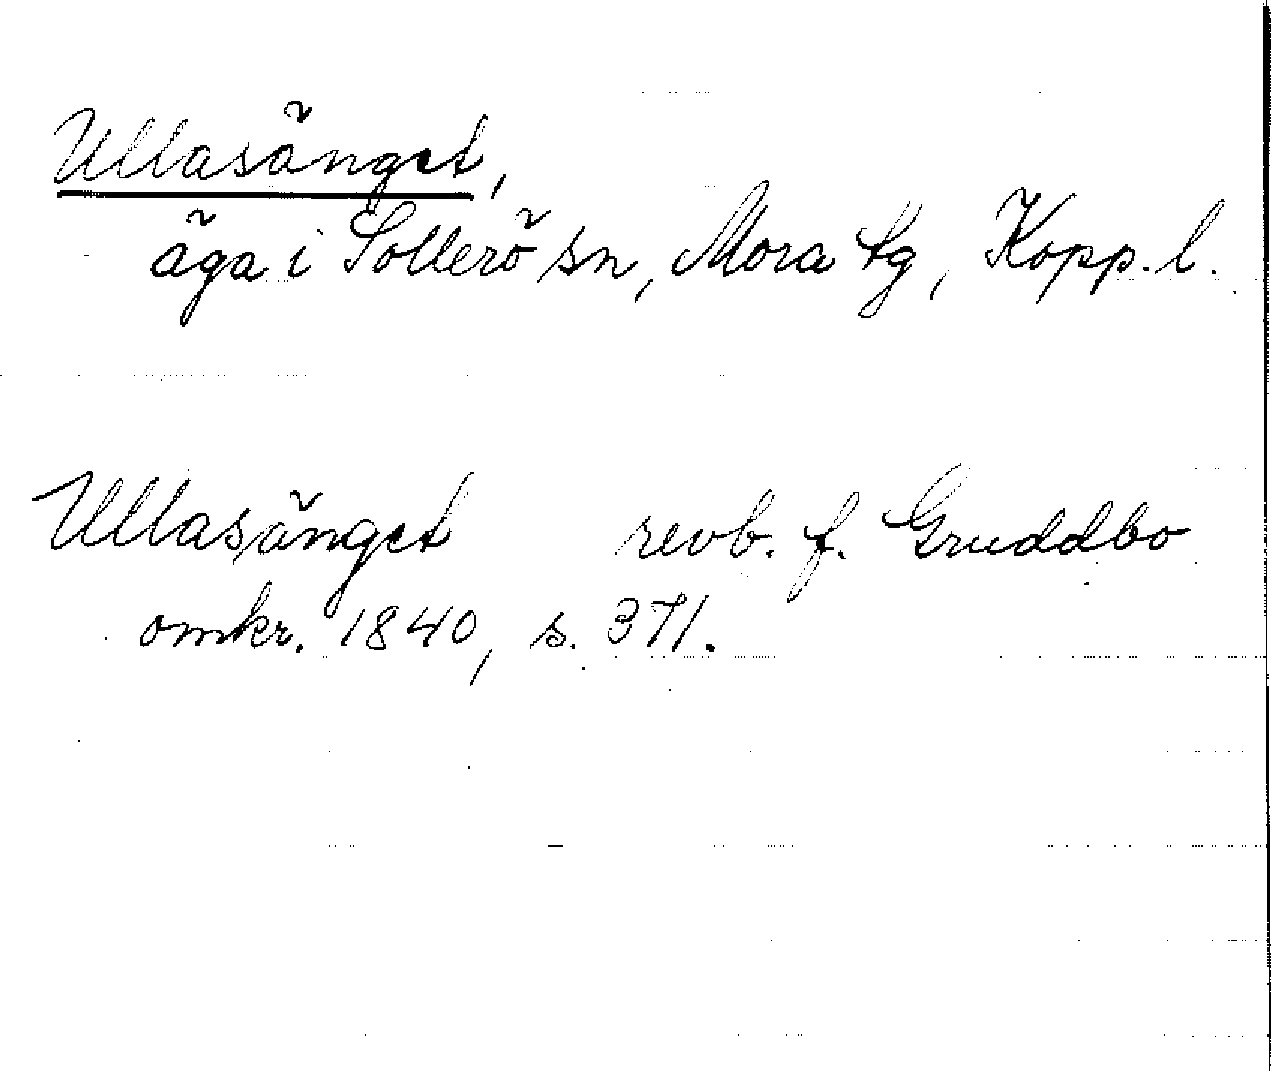 Ullasänget,
äga i Sollerö sn, Mora tg, Kopp. l.
Ullasänget revb. f. Gruddbo
omkr. 1840, s. 371.